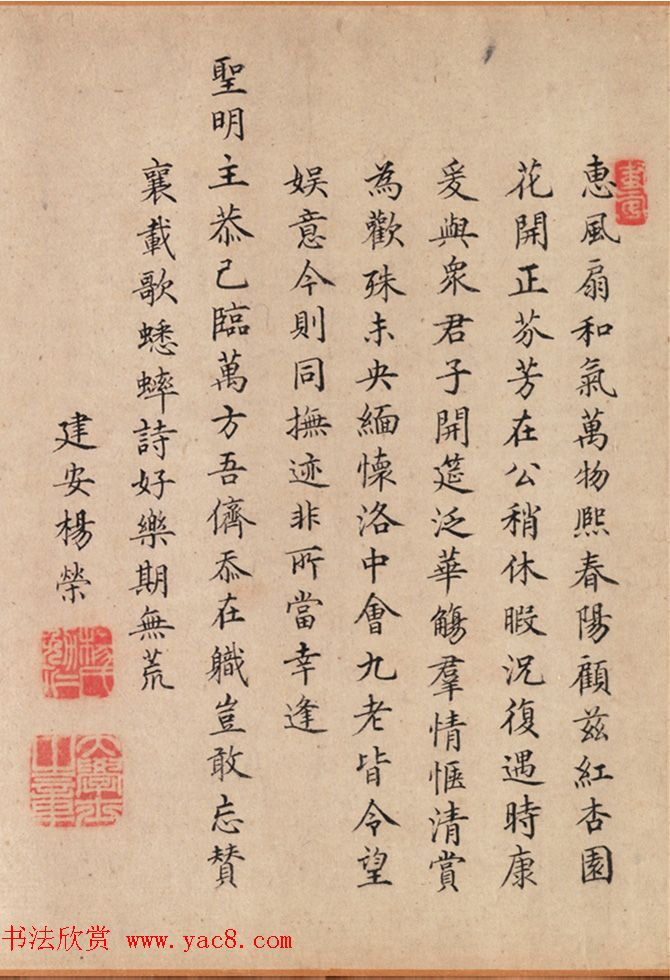 惠風扇和氣萬物熙春陽顧茲紅杏園
花開正芬芳在公稍休暇況復遇時康
爰與衆君子開筵泛華觴羣情愜清賞
為歡殊未央緬懷洛中會九老皆令望
娛意今則同撫迹非所當幸逢
聖明主恭己臨萬方吾儕忝在職豈敢忘贊
襄載歌蟋蟀詩好樂期無荒
建安楊榮
楊氏勉仁
大學士章
书法欣赏 www.yac8.com